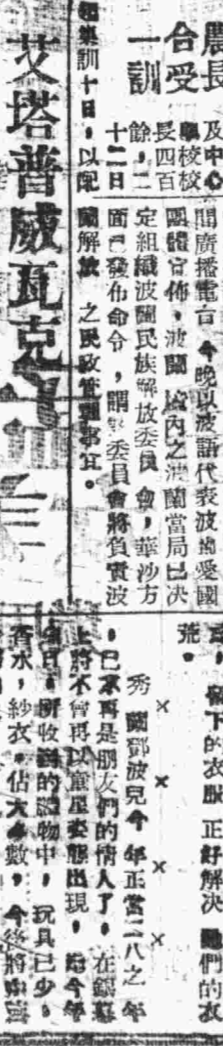 農長
合受
一訓
及中心
學校校
長四百
餘，二
十二日
集訓十日，以配
艾塔普威瓦克
間廣播電台，今晚以波語代表波蘭愛國
團體宣佈，波蘭境內之波蘭當局已決
定組織波蘭民族解放委員會，華沙方
面已發佈命令，謂委員會將負責波
蘭解放之民政管理事宜。
下的衣服正好解決她們的衣
荒。
× × ×
秀蘭鄧波兒今年正當二八之年
，已不再是朋友們的情人了。在銀幕
上將不會再以童星姿態出現，今年
生日，所收的禮物中，玩具已少，
香水，紗衣，佔大多數，今後將